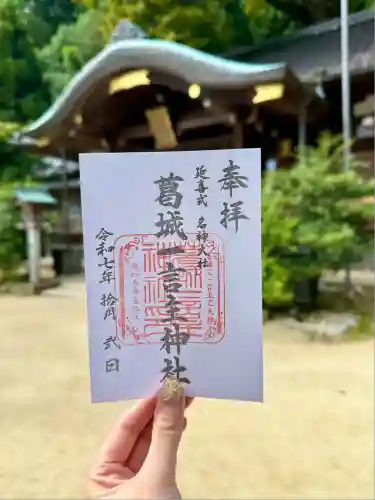 奉拝
延喜式 名神入社
葛城一言主神社
令和七年 拾月 弐日